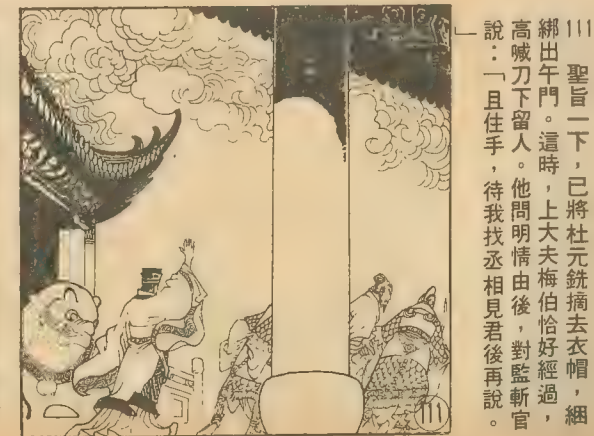 111 聖旨一下，已將杜元銑摘去衣帽，綑
綁出午門。這時，上大夫梅伯恰好經過，
高喊刀下留人。他問明情由後，對監斬官
說：「且住手，待我找丞相見君後再說。
」
111